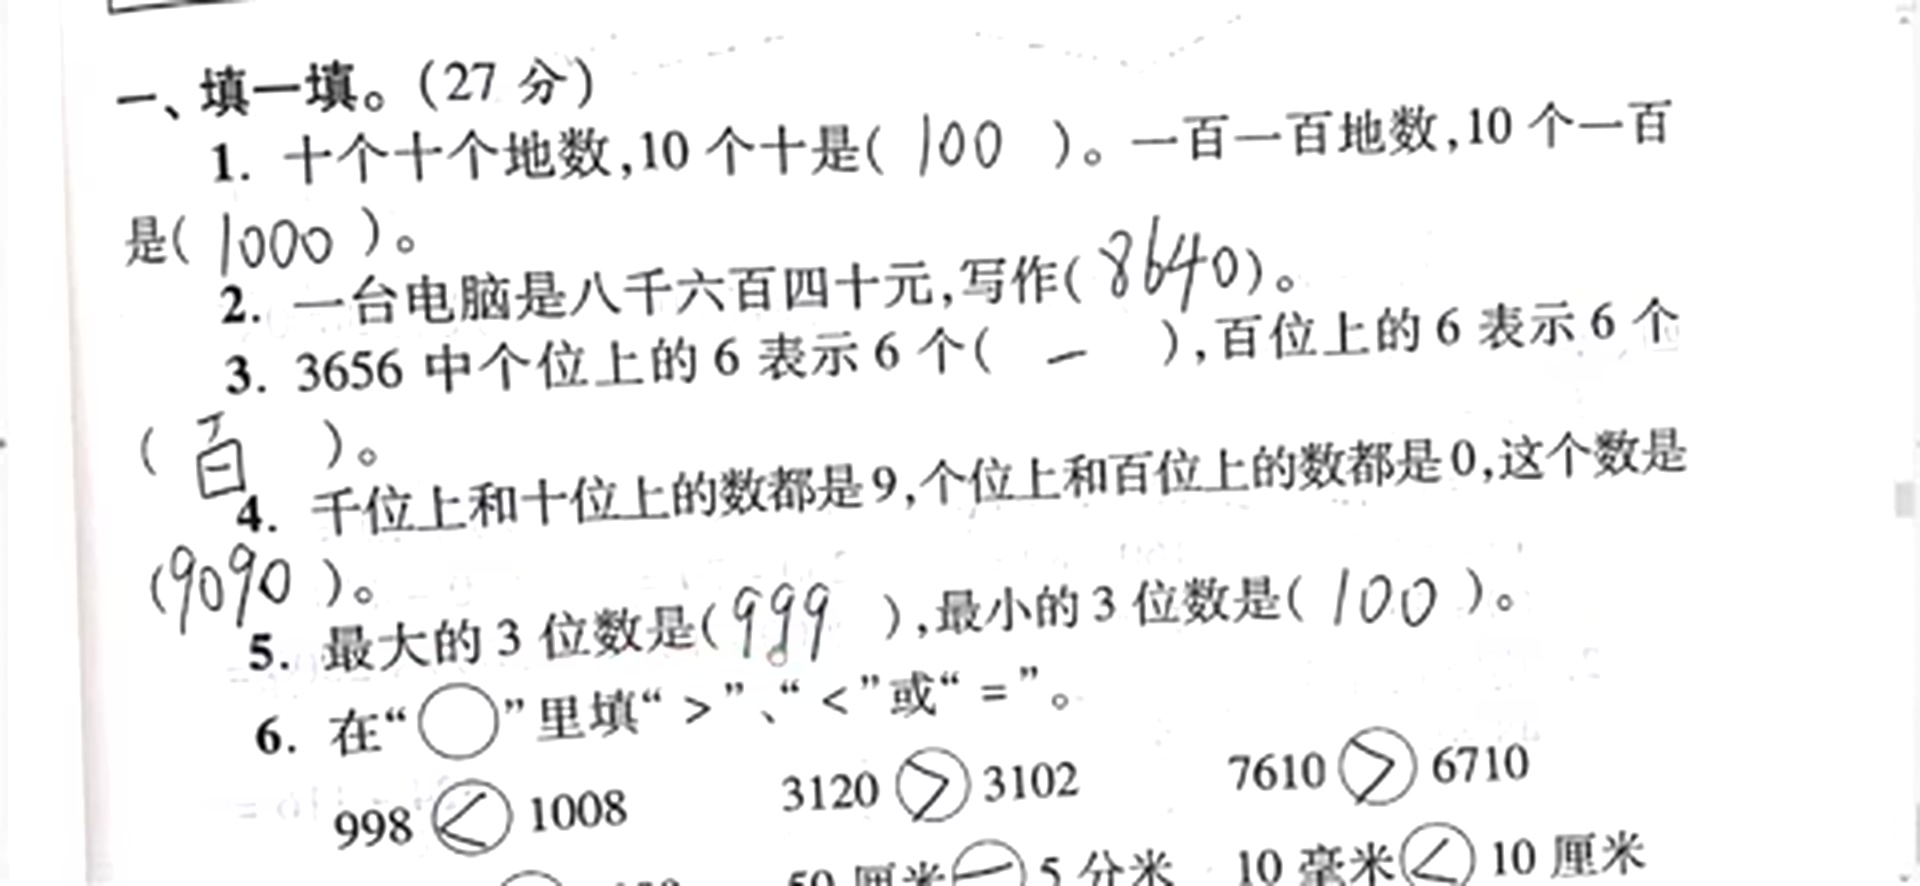 一、填一填。(27 分)
1. 十个十个地数,10 个十是( 100 )。一百一百地数,10 个一百
是( 1000 )。
2. 一台电脑是八千六百四十元,写作( 8640 )。
3. 3656 中个位上的 6 表示 6 个( 一 ),百位上的 6 表示 6 个
( 百 )。
4. 千位上和十位上的数都是9,个位上和百位上的数都是0,这个数是
( 9090 )。
5. 最大的 3 位数是( 999 ),最小的 3 位数是( 100 )。
6. 在“○”里填“ > ”、“ < ”或“ = ”。
998 < 1008 3120 > 3102 7610 > 6710
50 厘米 5 分米 10 毫米 < 10 厘米